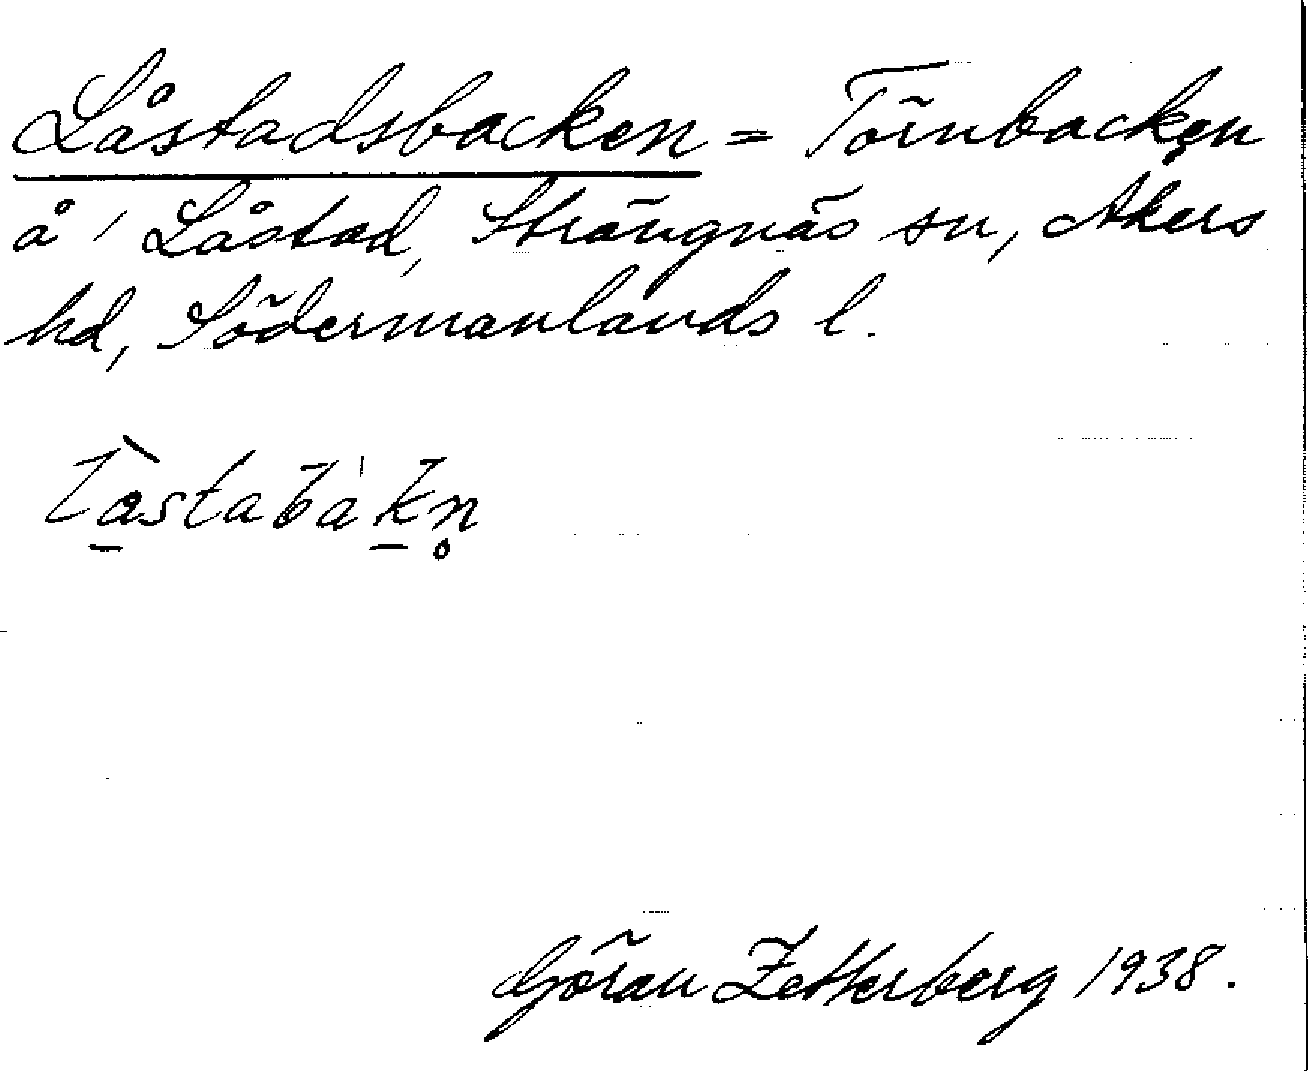 Låstadsbacken = Törnbacken
å 1 Låstad, Strängnäs sn, Åkers
hd, Södermanlands l.
Göran Zetterberg 1938.